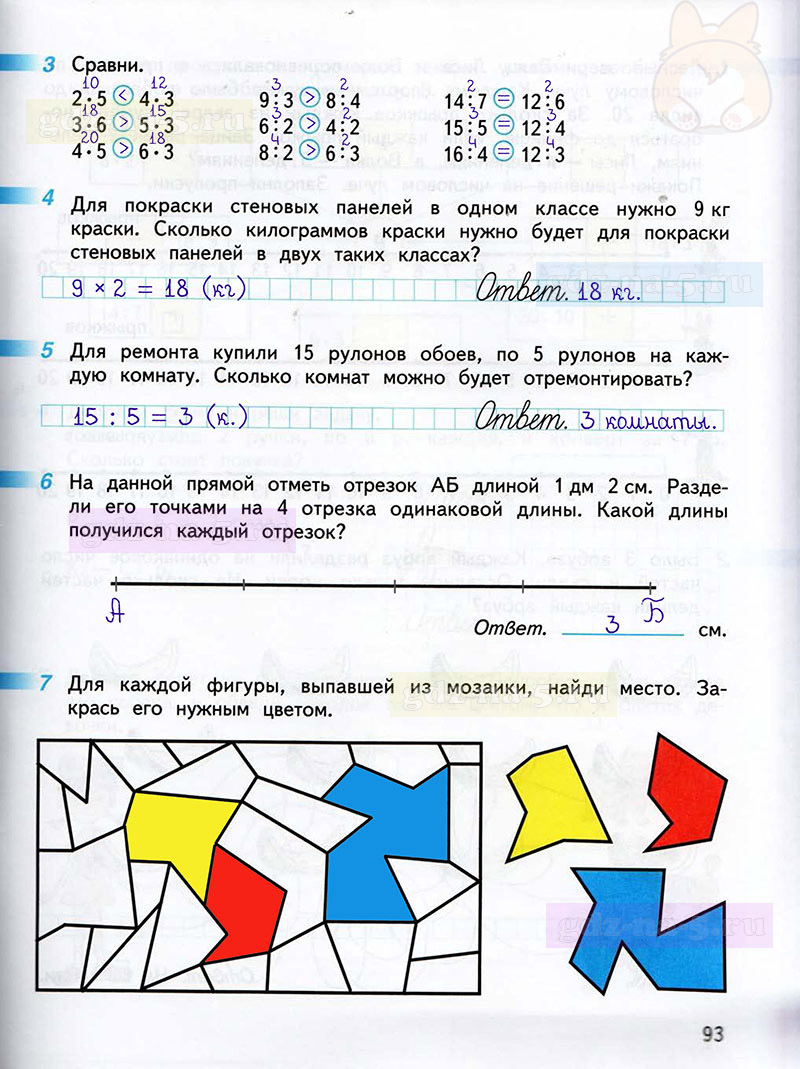 3 Сравни.
10 12
2·5 < 4·3
18 15
3·6 > 5·3
20 18
4·5 > 6·3
3 2
9:3 > 8:4
3 2
6:2 > 4:2
4 2
8:2 > 6:3
2 2
14:7 = 12:6
3 3
15:5 = 12:4
4 4
16:4 = 12:3
4 Для покраски стеновых панелей в одном классе нужно 9 кг
краски. Сколько килограммов краски нужно будет для покраски
стеновых панелей в двух таких классах?
9 × 2 = 18 (кг) Ответ. 18 кг.
5 Для ремонта купили 15 рулонов обоев, по 5 рулонов на каж-
дую комнату. Сколько комнат можно будет отремонтировать?
15 : 5 = 3 (к.) Ответ. 3 комнаты.
6 На данной прямой отметь отрезок АБ длиной 1 дм 2 см. Разде-
ли его точками на 4 отрезка одинаковой длины. Какой длины
получился каждый отрезок?
А Б
Ответ. 3 см.
7 Для каждой фигуры, выпавшей из мозаики, найди место. За-
крась его нужным цветом.
gdz-na-5.ru
93